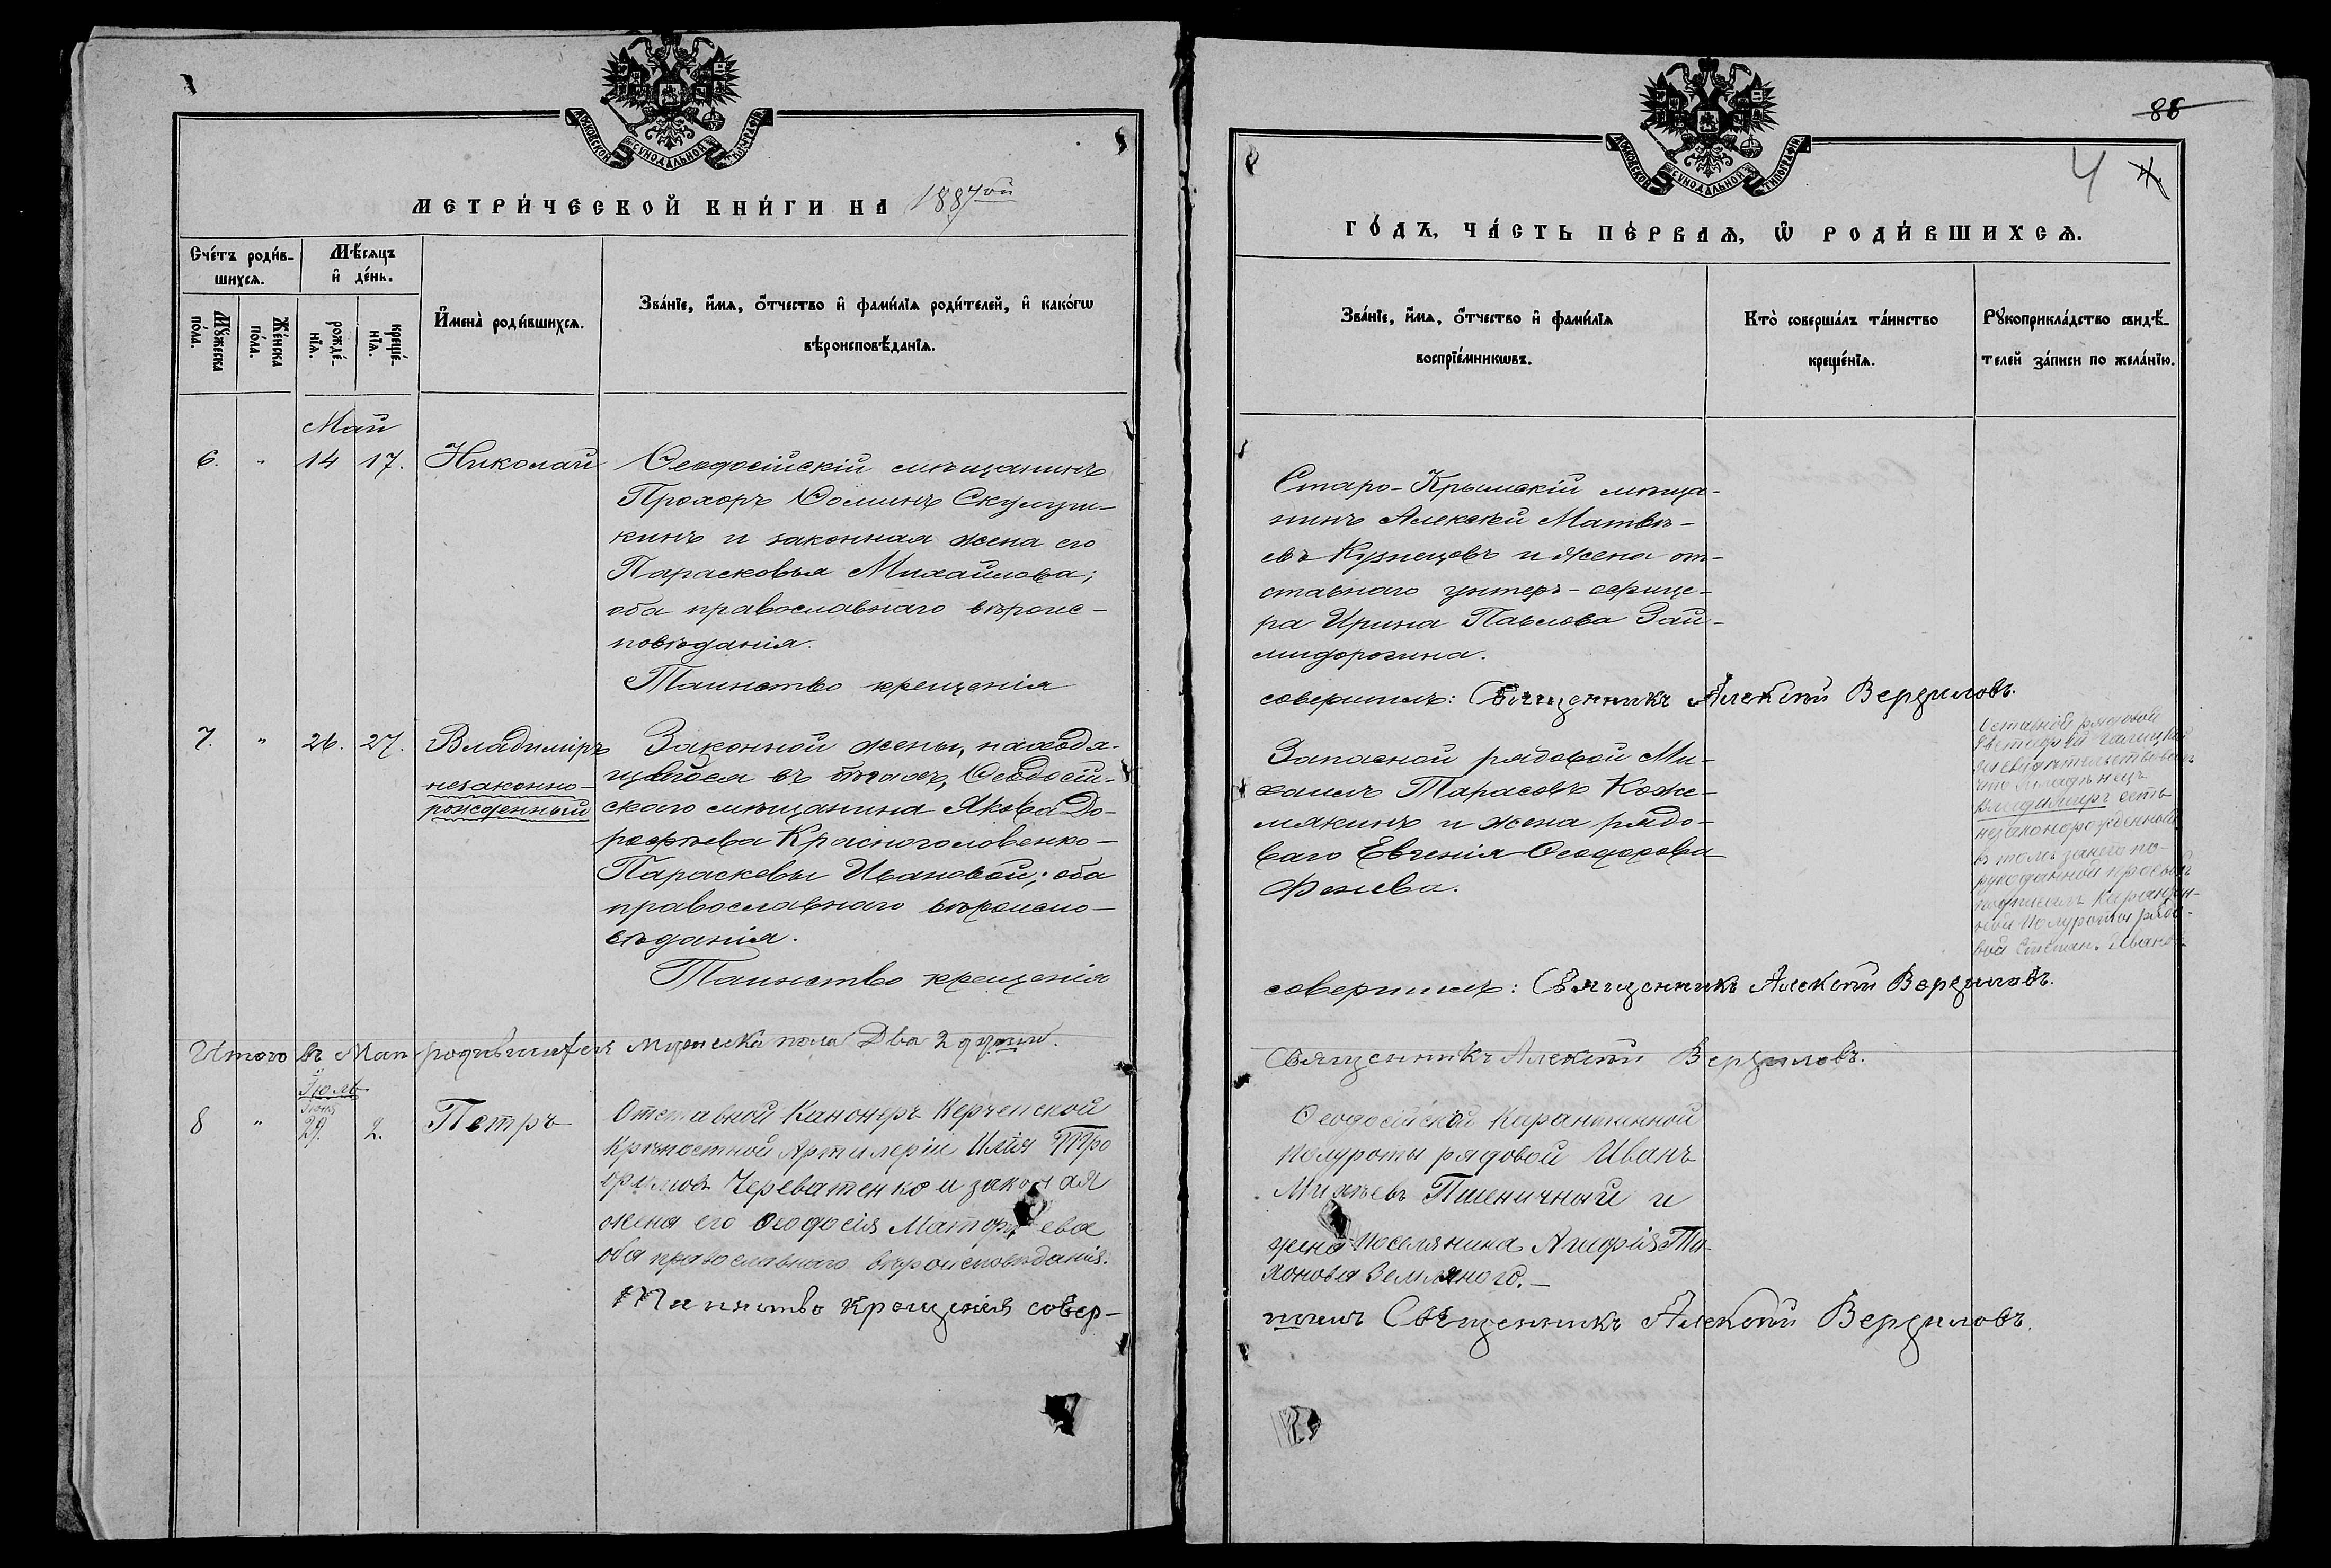 МОСКОВСКОЙ СѴНОДАЛЬНОЙ ТИПОГРАФІИ
МЕТРИ́ЧЕСКОЙ КНИ́ГИ НА 1887ой
Сче́тъ роди́в-
шихсѧ.
Мѣ́сѧцъ
и҆ де́нь.
Мꙋ́жеска
по́ла.
Же́нска
по́ла.
рожде́-
нїѧ.
креще́-
нїѧ.
И҆мена̀ роди́вшихсѧ.
Зва́нїе, и҆́мѧ, ѻ҆́тчество и҆ фами́лїѧ роди́телей, и҆ како́гѡ
вѣроисповѣ́данїѧ.
Май
6. " 14 17. Николай
Ѳеодосійскій мѣщанинъ
Прохоръ Ѳоминъ
кинъ и законная жена его
Парасковья Михайлова;
оба православнаго вѣроис-
повѣданія.
Таинство крещенія
7. " 26. 27. Владиміръ
незаконно-
рожденный
Законной жены, находя-
щейся въ бѣгахъ, Ѳеодосій-
скаго мѣщанина Якова До-
роѳеева Красноголовенко-
Параскевы Ивановой; оба
православнаго вѣроиспо-
вѣданія.
Таинство крещенія
Итого въ Маѣ родившихся мужеска пола Два 2 души.
Іюль
Іюня
8 " 29. 2. Петръ
Отставной Канонеръ Керченской
Крѣпостной Артилеріи Илія Тро
фимовъ Череватенко и законая
жена его Ѳеодосія
оба православнаго вѣроисповѣданія.
Таинство Крещенія совер-
МОСКОВСКОЙ СѴНОДАЛЬНОЙ ТИПОГРАФІИ
86
4
ГО́ДЪ, ЧА́СТЬ ПЕ́РВАѦ, Ѡ҆ РОДИ́ВШИХСѦ.
Зва́нїе, и҆́мѧ, ѻ҆́тчество и҆ фами́лїѧ
воспрїе́мникѡвъ.
Кто̀ соверша́лъ та́инство
креще́нїѧ.
Рꙋкоприкла́дство свидѣ́-
телей за́писи по жела́нїю.
Старо-Крымскій мѣща-
нинъ Алексѣй Матвѣ-
евъ Кузнецовъ и жена от-
ставнаго унтеръ-офице-
ра Ирина Павлова Зай-
мидорогина.
совершилъ: Священникъ Алексѣй Верзиловъ.
Запасной рядовой Ми-
хаилъ Тарасовъ Коже-
мякинъ и жена рядо-
ваго Евгенія Ѳеодорова
незаконорожденный
совершилъ: Священникъ Алексѣй Верзиловъ.
Священникъ Алексѣй Верзиловъ.
Ѳеодосійской Карантинной
полуроты рядовой Иванъ
Пшеничный и
жена поселянина Агафія Ти-
хонова Земляного.—
шилъ Священникъ Алексѣй Верзиловъ.